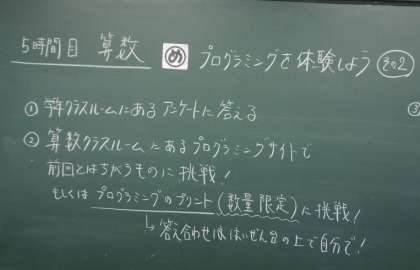 5時間目 算数 め プログラミングを体験しよう その2
① 学年クラスルームにあるアンケートに答える
② 算数クラスルームにあるプログラミングサイトで
前回とはちがうものに挑戦!
もしくはプログラミングのプリント(数量限定)に挑戦!
↳ 答え合わせははいぜん台の上で自分で!
③